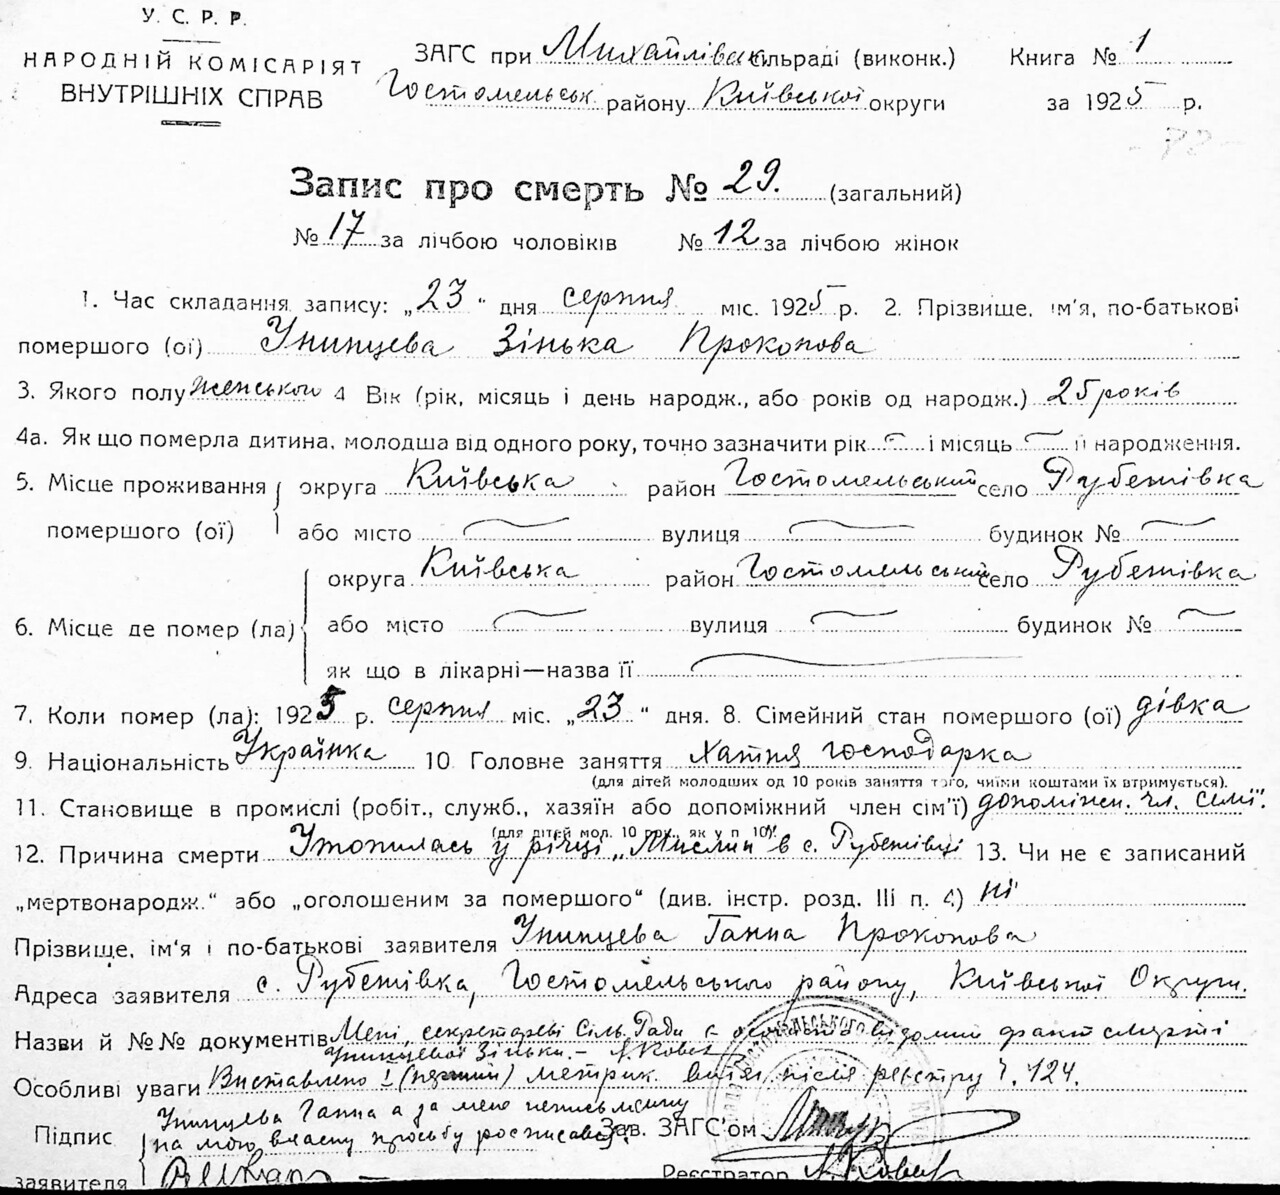 У. С. Р. Р.
НАРОДНІЙ КОМІСАРІЯТ
ВНУТРІШНІХ СПРАВ
ЗАГС при Михайлівськ. сільраді (виконк.) Книга № 1
Гостомельськ. району Київської округи за 1925 р.
- 72 -
Запис про смерть № 29. (загальний)
№ 17 за лічбою чоловіків № 12 за лічбою жінок
1. Час складання запису: „23" дня серпня міс. 1925 р. 2. Прізвище, ім'я, по-батькові
помершого (ої) Унинцева Зінька Прокопова
3. Якого полу женського 4 Вік (рік, місяць і день народж., або років од народж.) 25 років
4а. Як що померла дитина, молодша від одного року, точно зазначити рік — і місяць — її народження.
5. Місце проживання помершого (ої) округа Київська район Гостомельський село Рубежівка
або місто — вулиця — будинок № —
6. Місце де помер (ла) округа Київська район Гостомельський село Рубежівка
або місто — вулиця — будинок № —
як що в лікарні—назва її —
7. Коли помер (ла): 1925 р. серпня міс. „23" дня. 8. Сімейний стан помершого (ої) дівка
9. Національність Українка 10 Головне заняття Хатня господарка
(для дітей молодших од 10 років заняття того, чиїми коштами їх втримується).
11. Становище в промислі (робіт., служб., хазяїн або допоміжний член сім'ї) допоміжн. чл. семї.
(для дітей мол. 10 рок., як у п 10).
12. Причина смерти Утопилась у річці в с. Рубежівці 13. Чи не є записаний
„мертвонародж." або „оголошеним за помершого" (див. інстр. розд. III п. 4) ні
Прізвище, ім'я і по-батькові заявителя Унинцева Ганна Прокопова
Адреса заявителя с. Рубежівка, Гостомельського району, Київської Округи.
Назви й №№ документів Мені, секретареві Сіль. Ради є особисто відомий факт смерті
Унинцевої Зіньки. - А Ковер
Особливі уваги Виставлено 1 (перший) метрик. витяг після реєстру ч. 124.
Підпис заявителя Унинцева Ганна а за мене неписьменну
на мою власну просьбу росписався
Зав. ЗАГС'ом
Реєстратор А Ковер